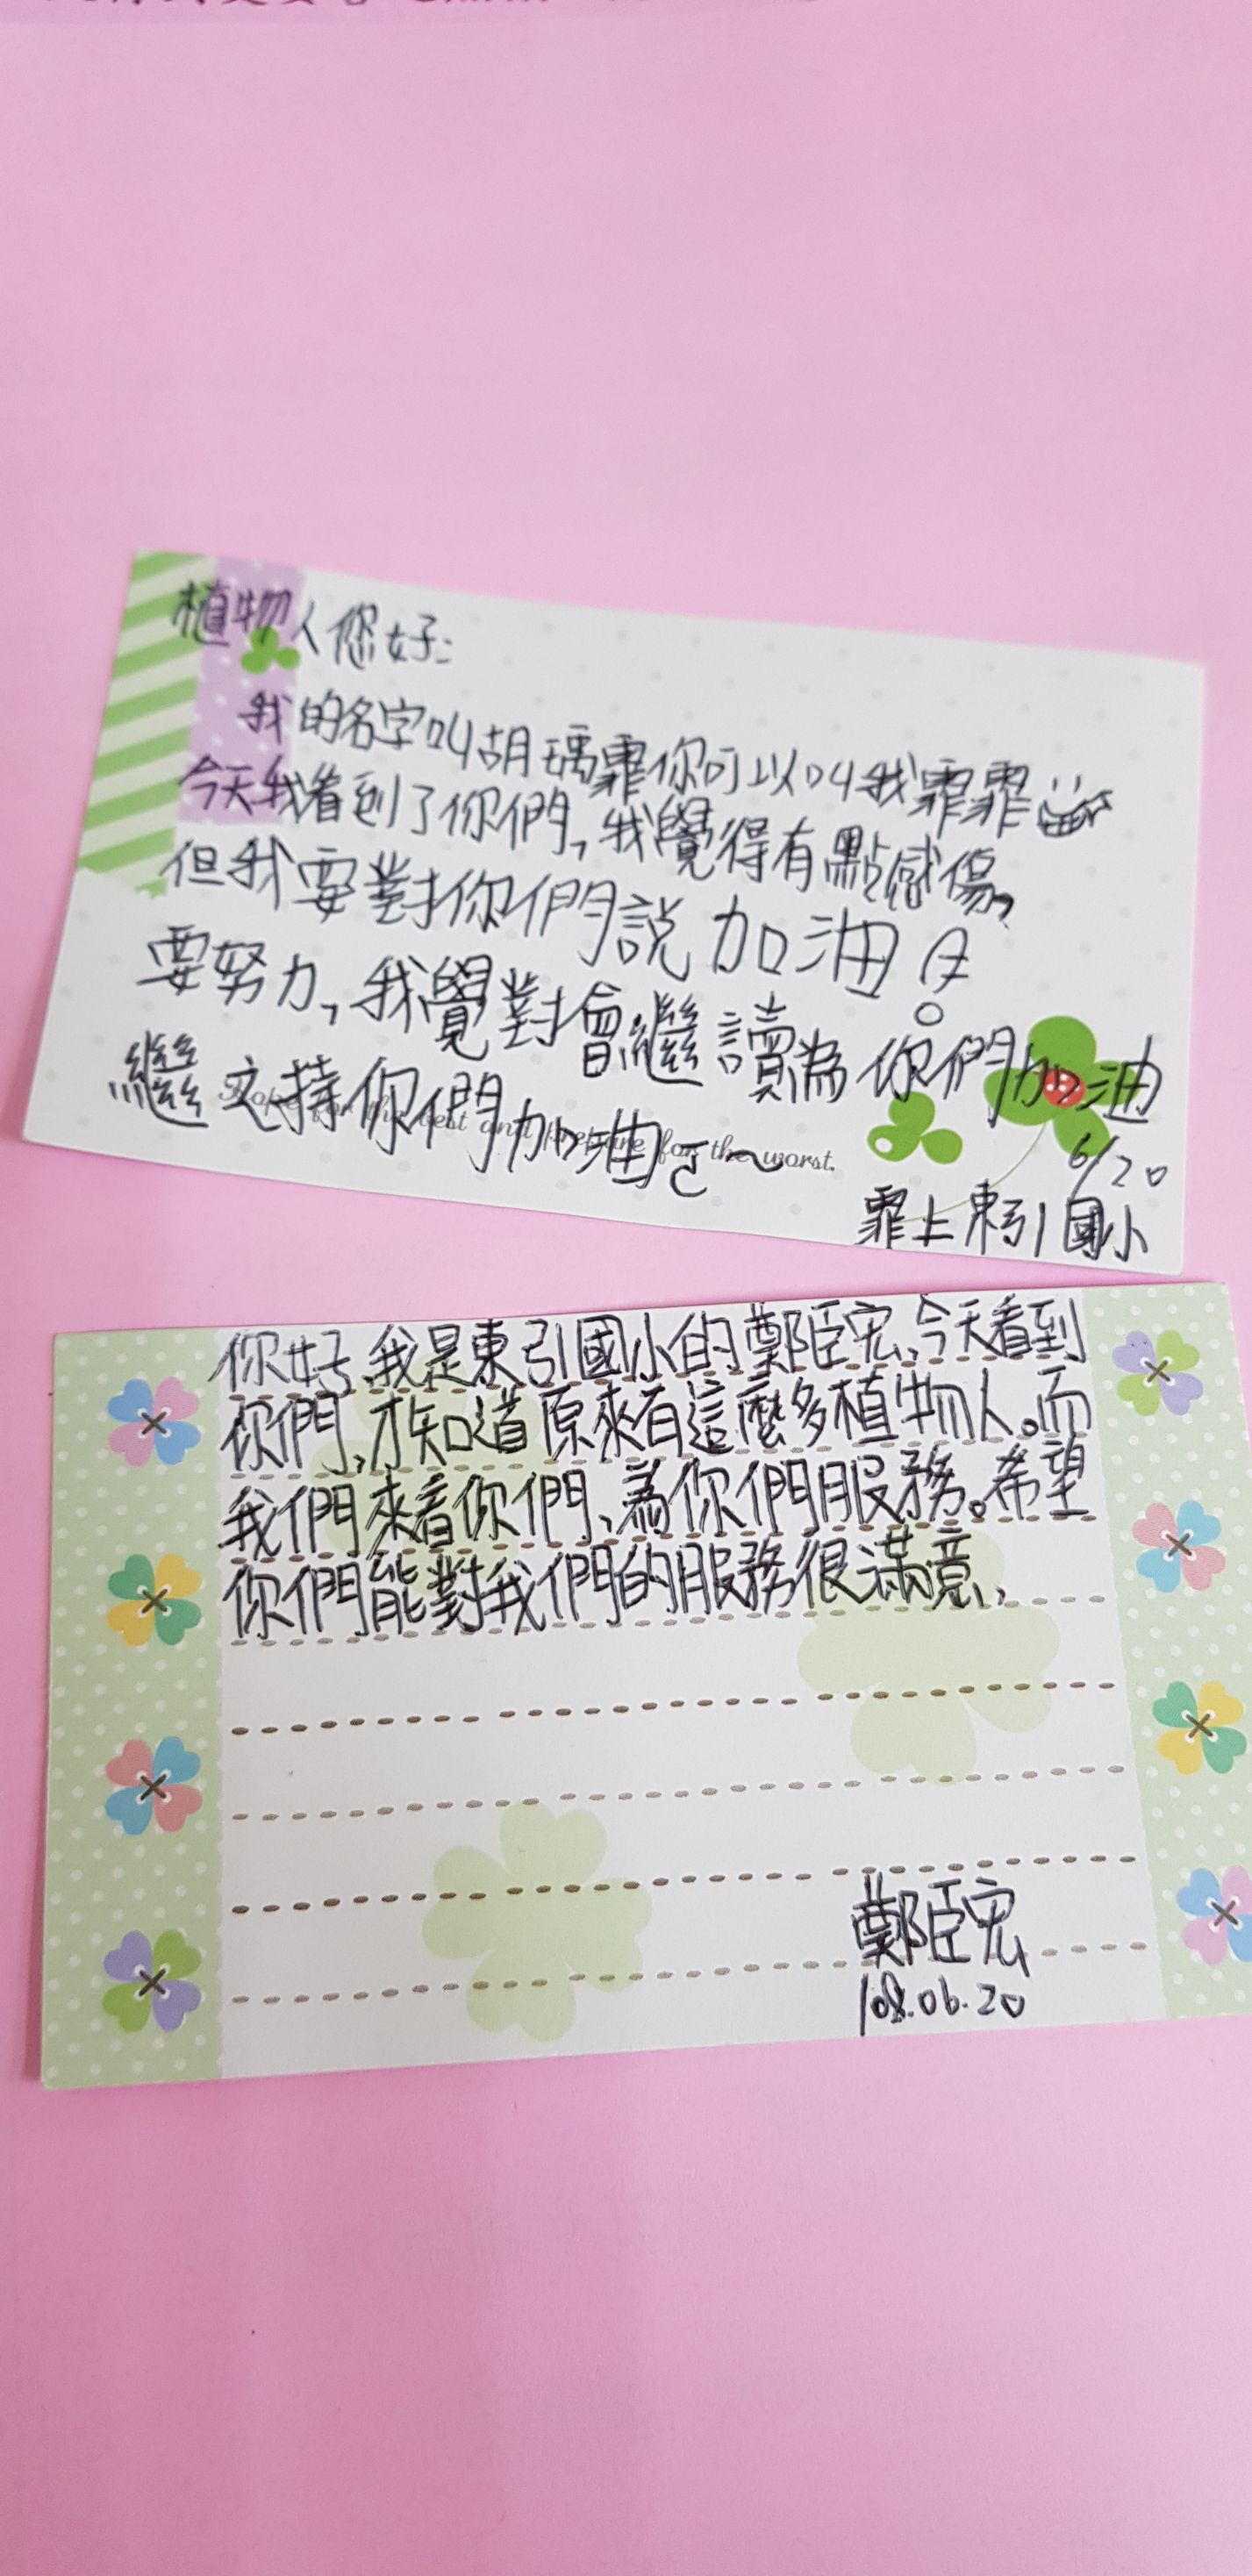 植物人您好:
我的名字叫胡瑀霏你可以叫我霏霏
今天我看到了你們,我覺得有點感傷,
但我要對你們說加油!
要努力,我覺對會繼讀為你們加油
繼支持你們加油~
Hope for the best and prepare for the worst.
6/20
霏上東引國小
你好,我是東引國小的鄭臣宏,今天看到
你們,才知道原來有這麼多植物人。而
我們來看你們、為你們服務。希望
你們能對我們的服務很滿意,
鄭臣宏
108.06.20